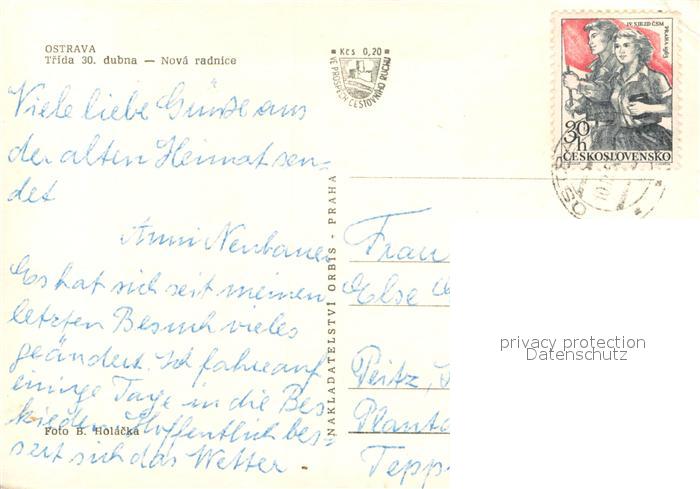 OSTRAVA
Třída 30. dubna — Nová radnice
Kčs 0,20
VE PROSPĚCH CESTOVNÍHO RUCHU
IV. SJEZD ČSM
PRAHA 1963
30 h
ČESKOSLOVENSKO
Viele liebe Grüsse aus
der alten Heimat sen-
det
Anni Neubauer
Es hat sich seit meinen
letzten Besuch vieles
geändert. Ich fahre auf
einige Tage in die Bes
kieden. Hoffentlich bes-
sert sich das Wetter
Foto B. Holáčká
NAKLADATELSTVÍ ORBIS - PRAHA
Frau
Else
Peitz,
Planta
Tepp
privacy protection
Datenschutz